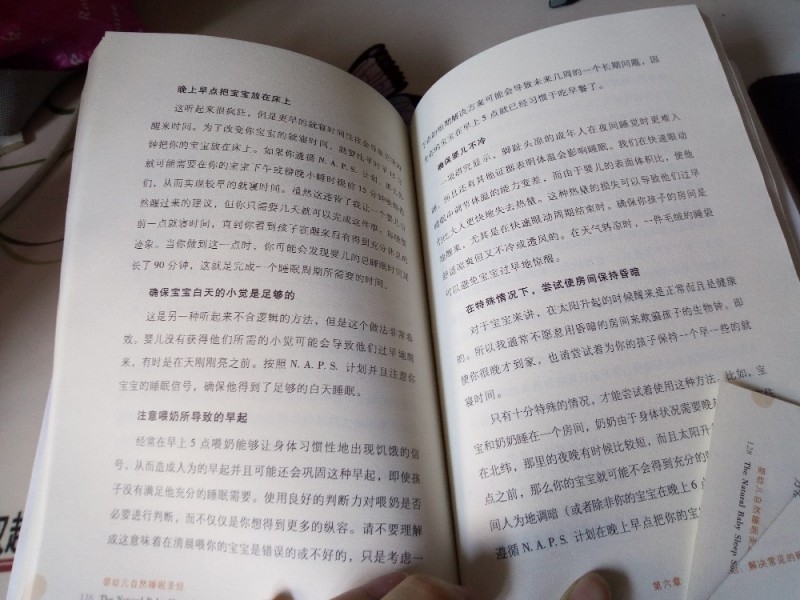 晚上早点把宝宝放在床上
这听起来很疯狂，但是更早的就寝时间往往会导致
醒来时间。为了改变你宝宝的就寝时间，就要
钟把你的宝宝放在床上。如果你遵循 N. A. P. S. 计划，那么你
就可能需要在你的宝宝下午或傍晚小睡时提前 15 分钟唤醒他
们，从而实现较早的就寝时间。虽然这违背了我让一个婴儿自
然醒过来的建议，但你只需要几天就可以完成这件事。
前一点就寝时间，直到你看到孩子在醒来后有得到充分休息的
迹象。当你做到这一点时，你可能会发现婴儿的总睡眠时间延
长了 90 分钟，这就是完成一个睡眠周期所需要的时间。
确保宝宝白天的小觉是足够的
这是另一种听起来不合逻辑的方法，但是这个做法非常有
效。婴儿没有获得他们所需的小觉可能会导致他们过早地醒
来，有时是在天刚刚亮之前。按照 N. A. P. S. 计划并且注意你
宝宝的睡眠信号，确保他得到了足够的白天睡眠。
注意喂奶所导致的早起
经常在早上 5 点喂奶能够让身体习惯性地出现饥饿的信
号，从而造成人为的早起并且可能还会巩固这种早起，即使孩
子没有满足他充分的睡眠需要。使用良好的判断力对喂奶是否
必要进行判断，而不仅仅是你想得到更多的纵容。请不要理解
成这意味着在清晨喂你的宝宝是错误的或不好的，只是考虑一
婴幼儿自然睡眠圣经
解决方案可能会导致未来几周的一个长期问题，因
为你的宝宝在早上 5 点就已经习惯于吃早餐了。
确保婴儿不冷
一项研究显示，脚趾头凉的成年人在夜间睡觉时更难入
睡，而且还有其他证据表明体温会影响睡眠。我们在快速眼动
睡眠中调节体温的能力变差，而由于婴儿的表面体积比，使他
们比大人更快地失去热量。这种热量的损失可以导致他们过早
地醒来，尤其是在快速眼动周期结束时。确保你孩子的房间是
舒适凉爽但又不冷或透风的。在天气转凉时，一件毛绒的睡袋
可以避免宝宝过早地惊醒。
在特殊情况下，尝试使房间保持昏暗
对于宝宝来讲，在太阳升起的时候醒来是正常而且是健康
的。所以我通常不愿意用昏暗的房间来欺骗孩子的生物钟。即
使你很晚才到家，也请尝试着为你的孩子保持一个早一些的就
寝时间。
只有十分特殊的情况，才能尝试着使用这种方法。比如，宝
宝和奶奶睡在一个房间，奶奶由于身体状况需要晚
在北纬，那里的夜晚有时候比较短，而且太阳升
点之前，那么你的宝宝就可能不会得到充分的
间人为地调暗（或者除非你的宝宝在晚上 6 点
遵循 N. A. P. S. 计划在晚上早点把你的宝宝放
第六章
129
The Natural Baby Sleep
解决常见的